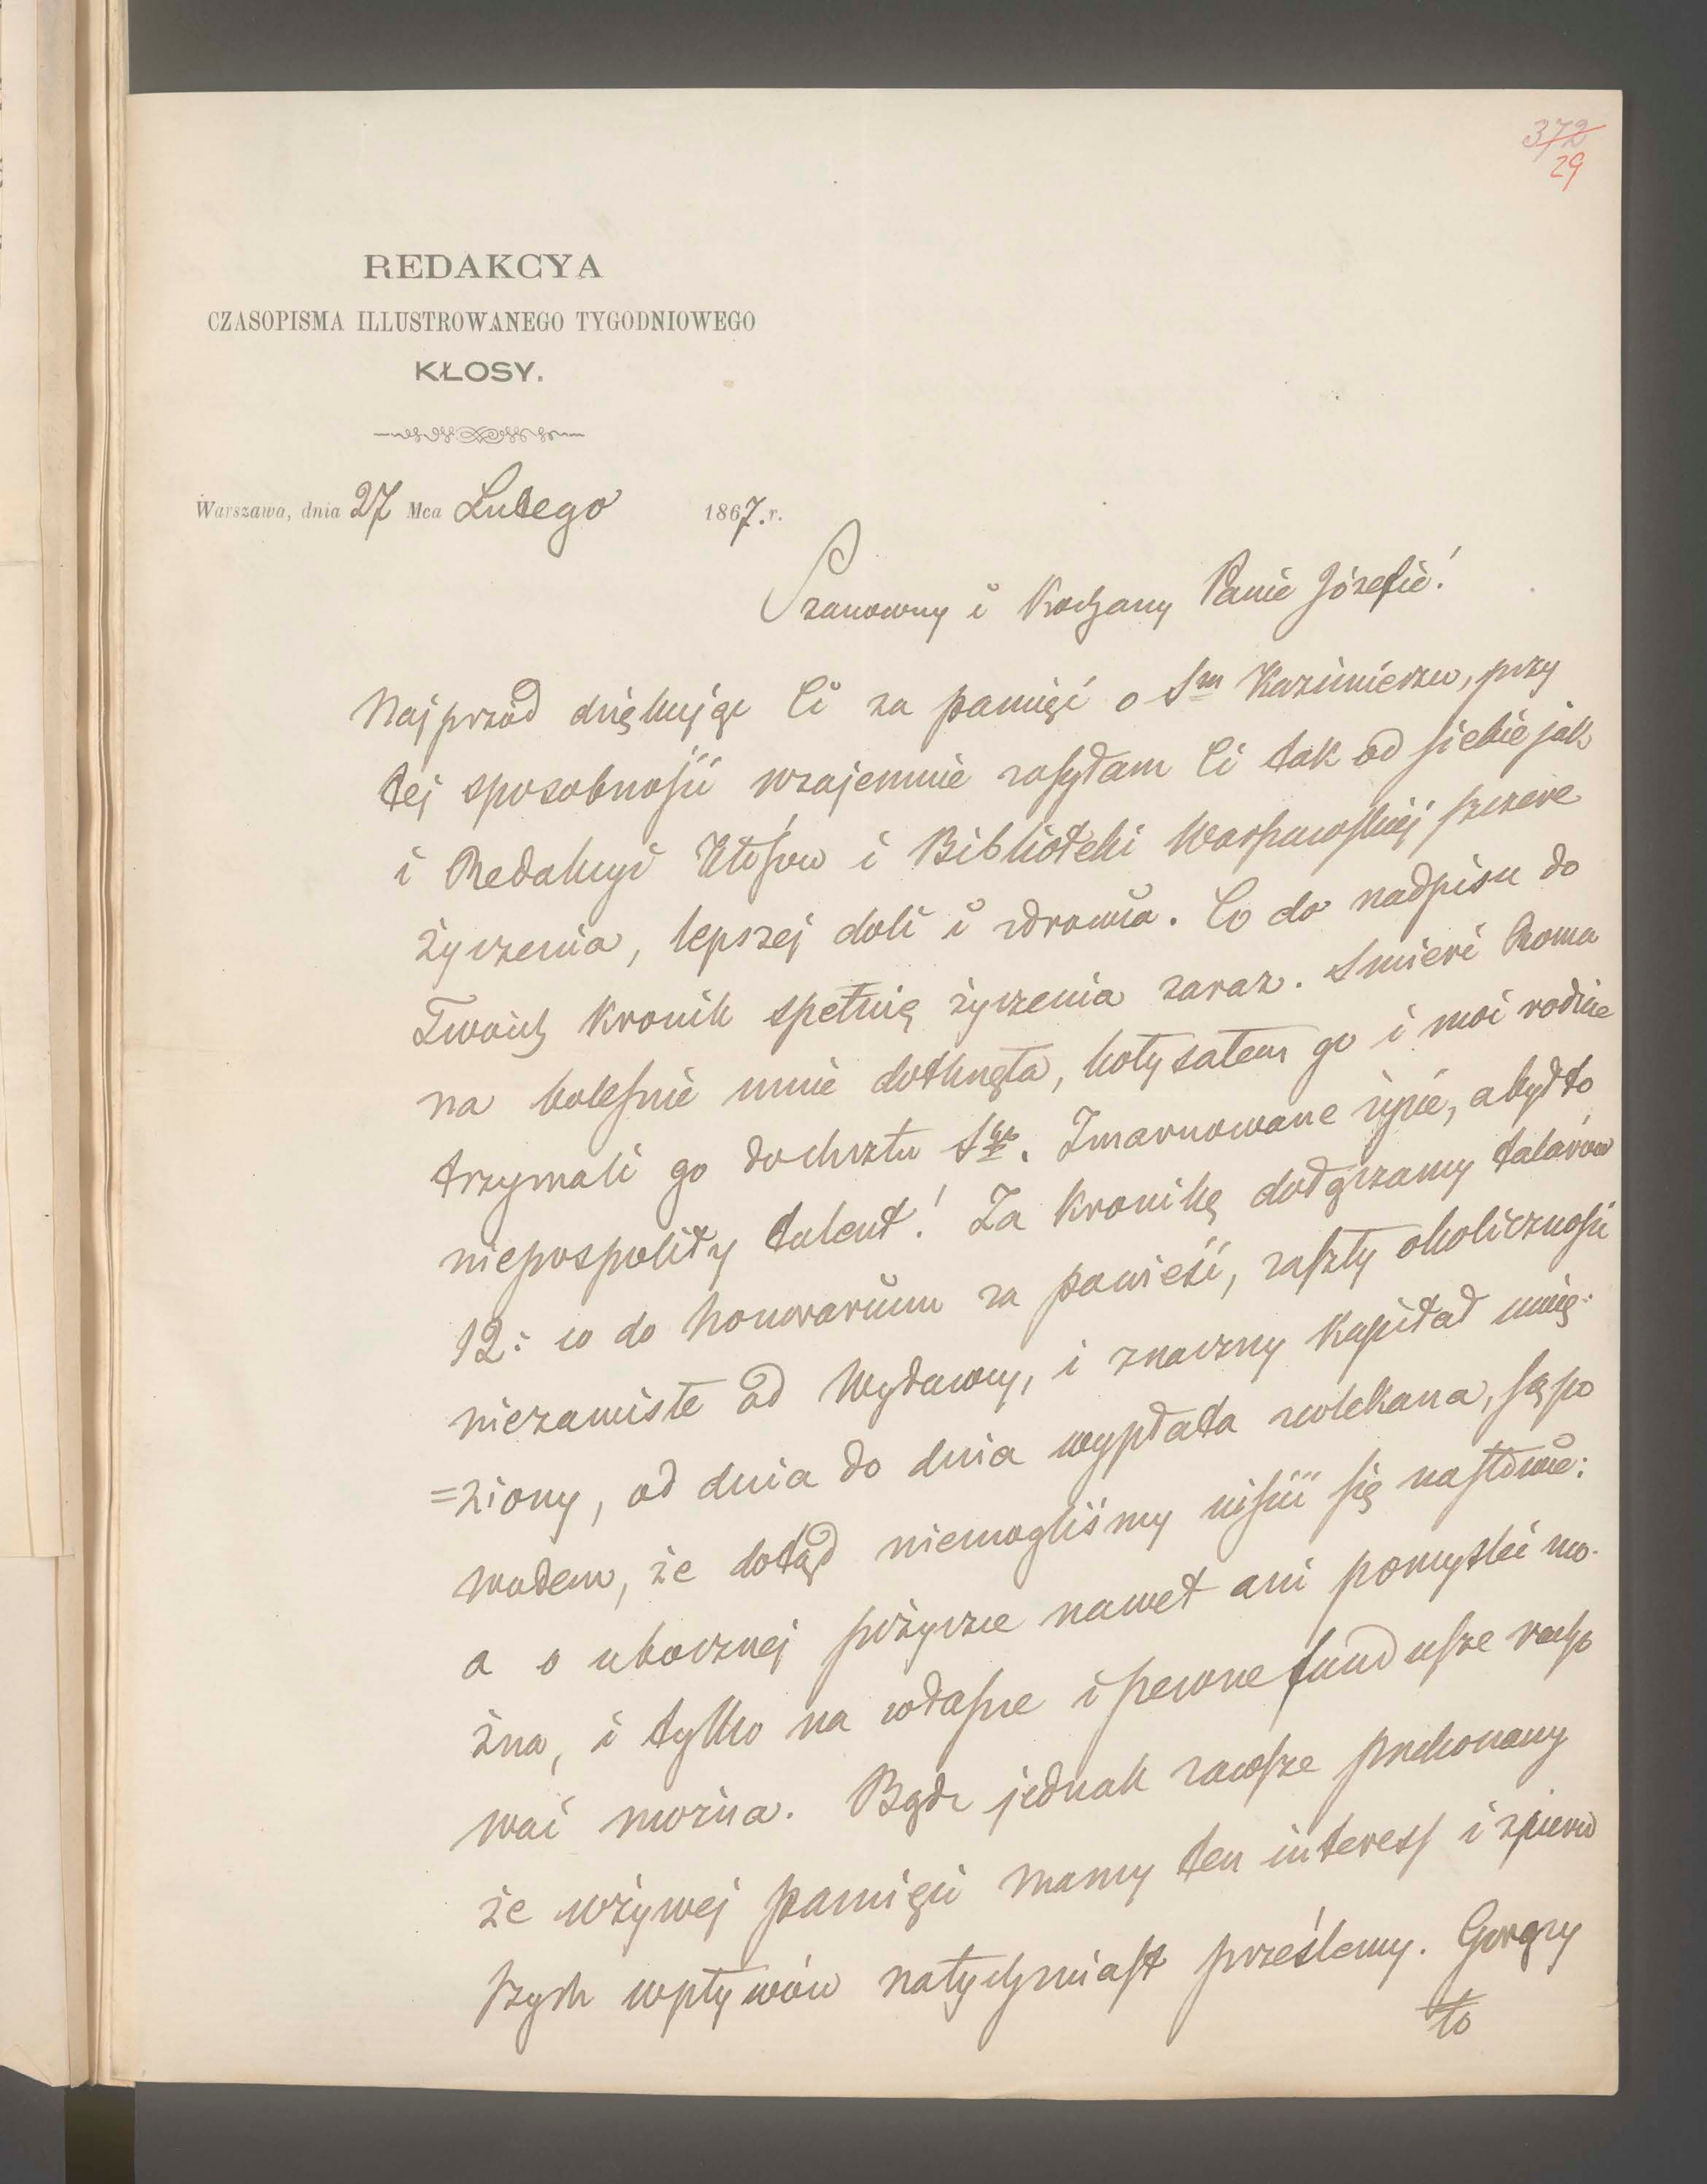 372
29
REDAKCYA
CZASOPISMA ILLUSTROWANEGO TYGODNIOWEGO
KŁOSY.
Warszawa, dnia 27 Mca Lutego 1867. r.
Szanowny i Kochany Panie Józefie!
Najprzód dziękując Ci za pamięć o Sm Kazimierzu, przy
tej sposobności wzajemnie zasyłam Ci tak od siebie jak
i Redakcyi Kłosów i Biblioteki Warszawskiej szczere
życzenia, lepszej doli i zdrowia. Co do nadpisu do
Twoich Kronik spełnię życzenia zaraz. Śmierć Roma
na boleśnie mnie dotknęła, kołysałem go i moi rodzice
trzymali go do chrztu Sgo. Zmarnowane życie, a był to
niepospolity talent! Za Kronikę dołączamy talarów
12: co do honorarium za powieść, zaszły okoliczności
niezawisłe od Wydawcy, i znaczny kapitał uwię-
=ziony, od dnia do dnia wypłata zwlekana, są po
wodem, że dotąd niemogliśmy uiścić się
a o ubocznej pożyczce nawet ani pomyśleć mo-
żna, i tylko na własne i pewne fundusze racho
wać można. Bądź jednak zawsze przekonany
że w żywej pamięci mamy ten interess i z pierw
szych wpływów natychmiast prześlemy. Gorący
to